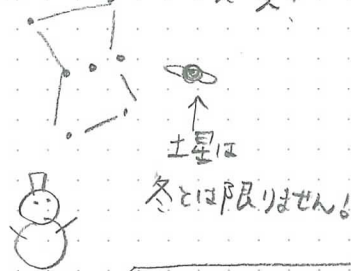 土星は
冬とは限りません！